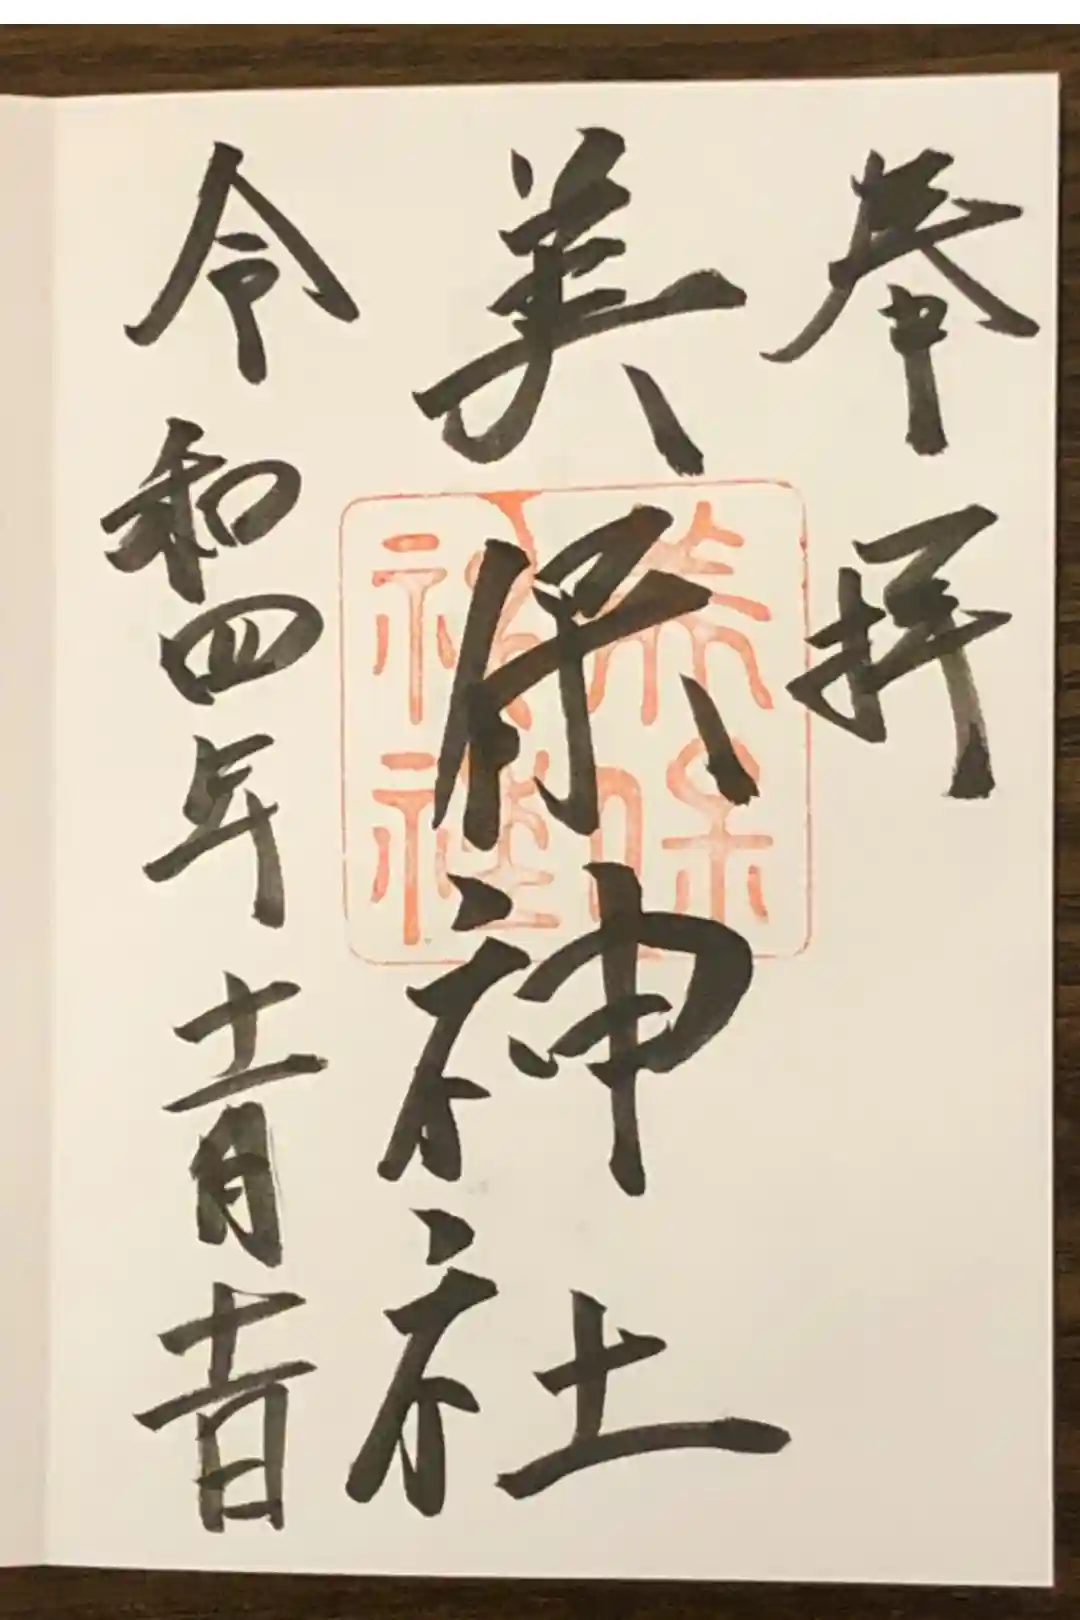 奉拝
美保神社
令和四年十一月十一日
美保
神社